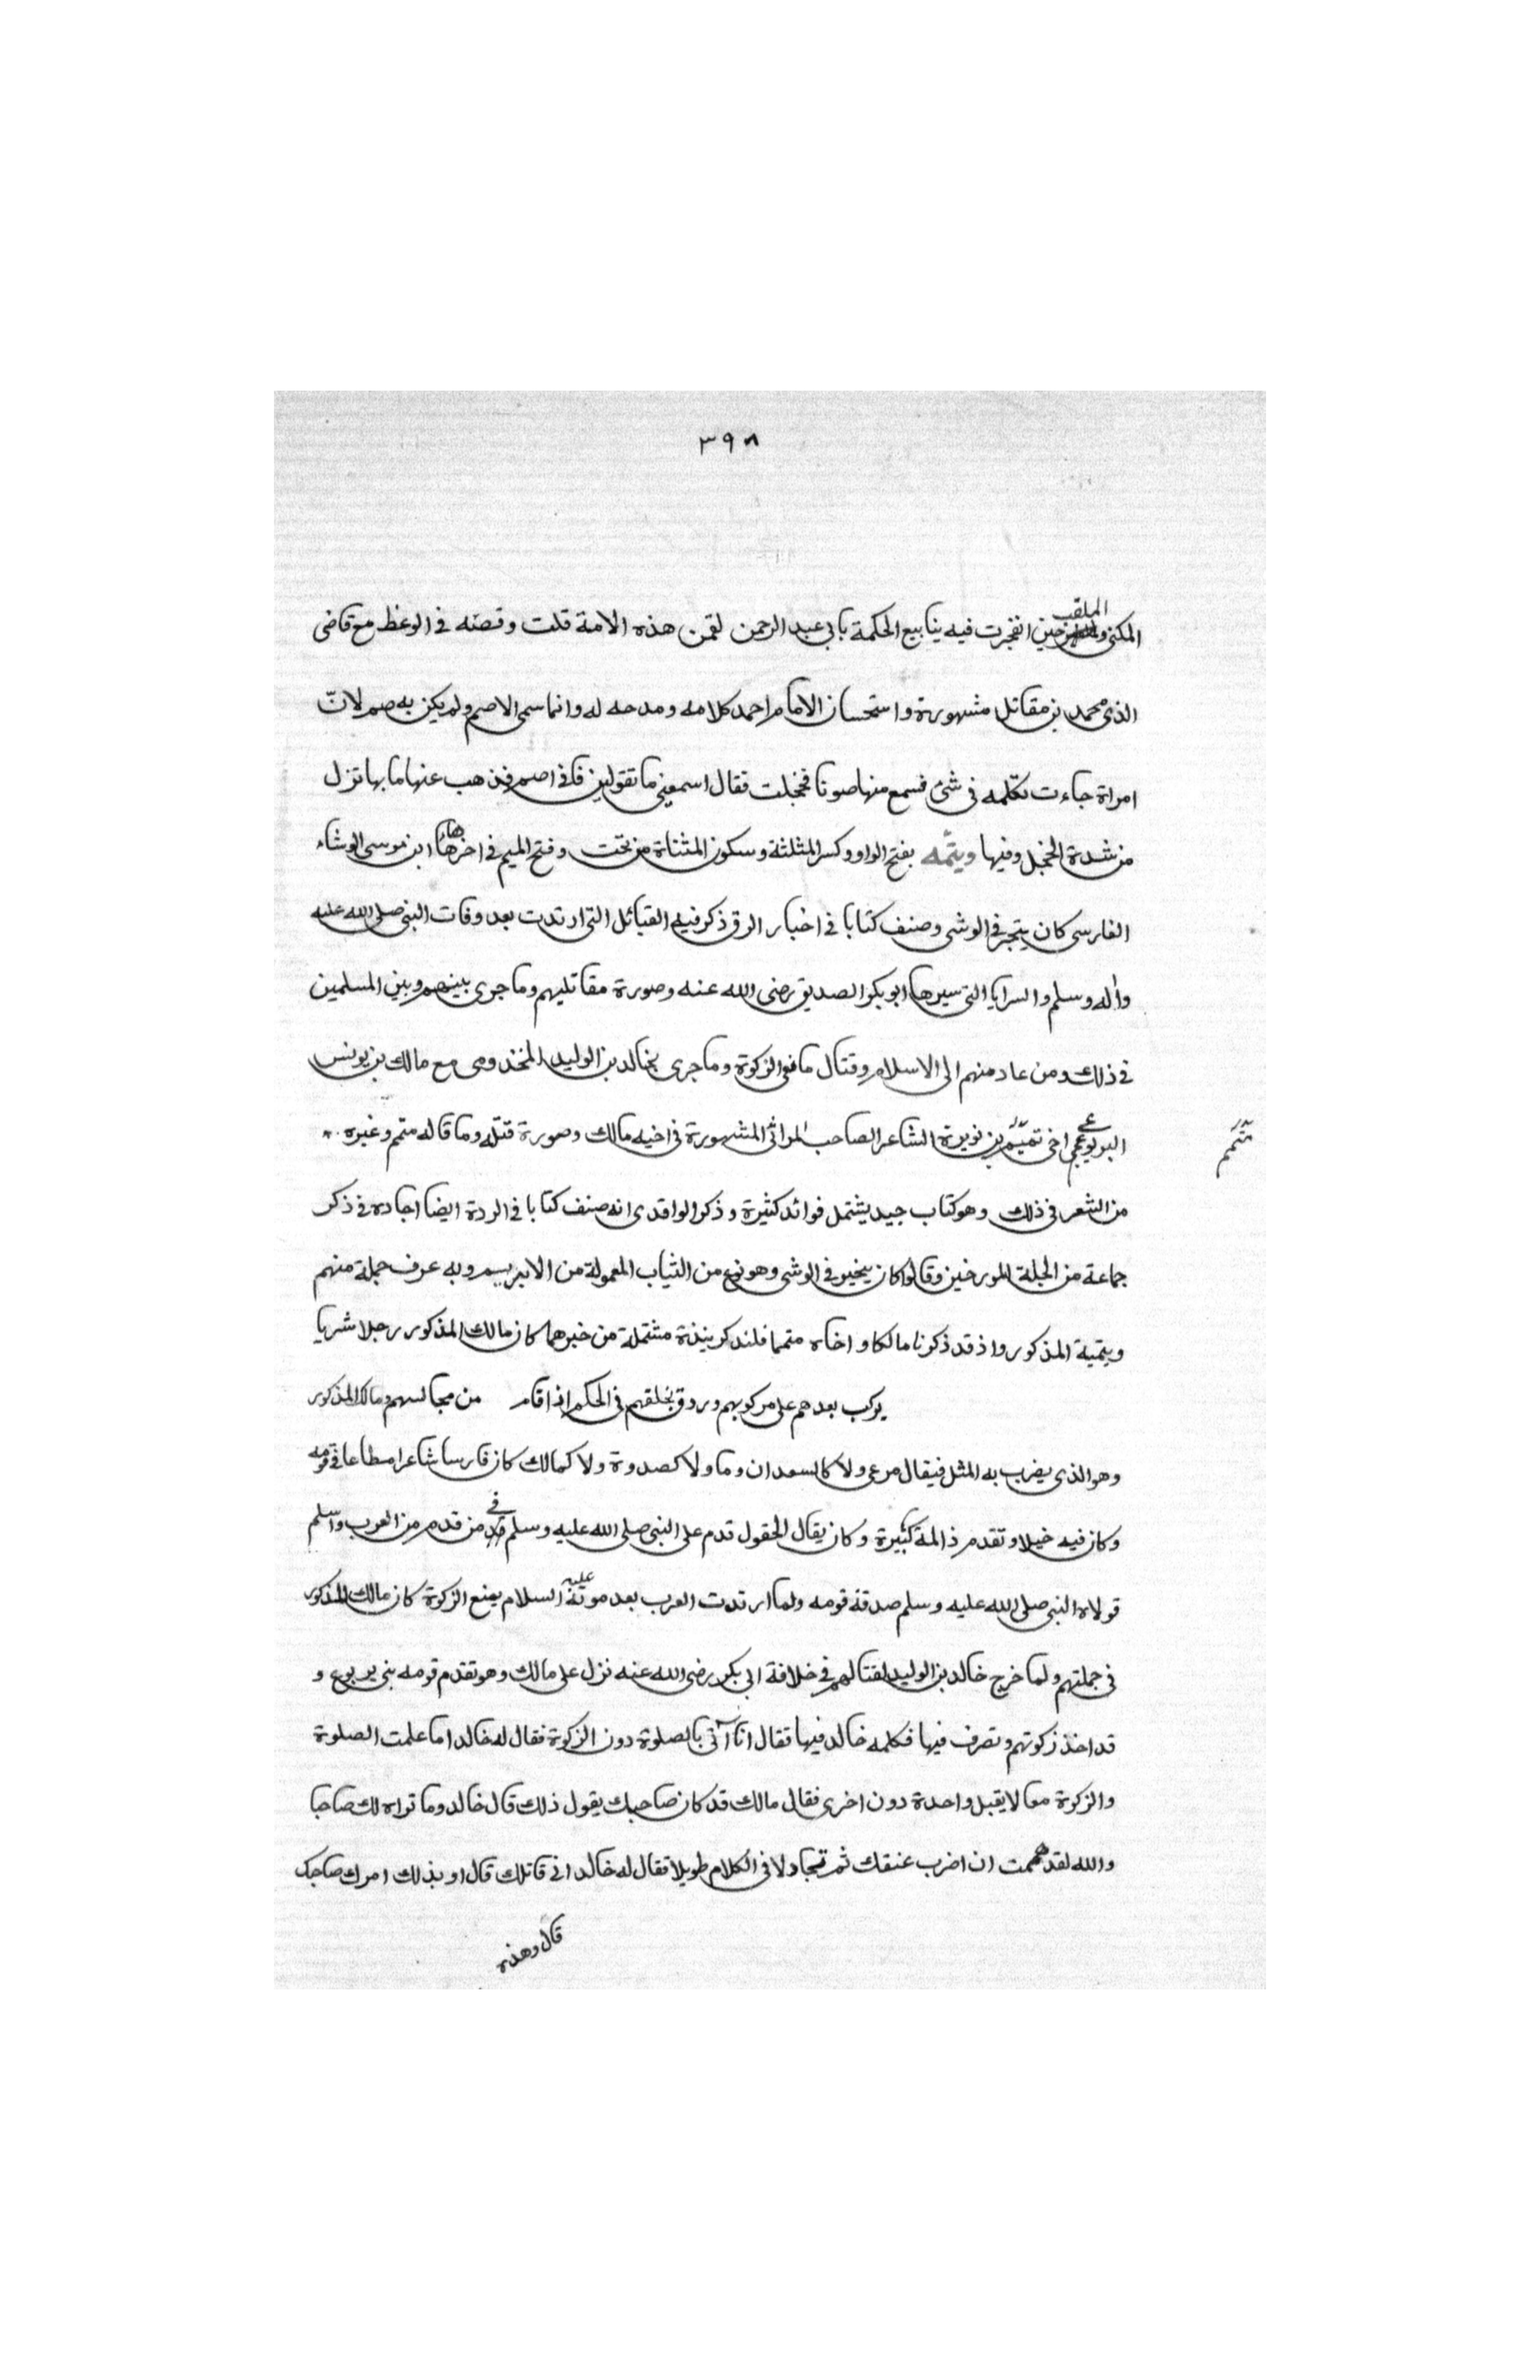 ٣٩٨
المكنى والملقب حين انفجرت فيه ينابيع الحكمة بابى عبد الرحمن لقمن هذه الامة قلت وقصته فى الوعظ مع قاضى
الذى محمد بن مقاتل مشهورة واستحسان الامام احمد كلامه ومدحه له وانما سمى الاصم ولم يكن به صمم لانّ
امراة جاءت تكلمه فى شئ فسمع منها صوتا فخجلت فقال اسمعينى ما تقولين فانى اصم فذهب عنها ما بها نزل
من شدة الخجل وفيها ويثمه بفتح الواو وكسر المثلثة وسكون المثناة من تحت وفتح الميم فى اخرها هاء ابن موسى الوشاء
الفارسى كان يتجر فى الوشى وصنف كتابا فى اخبار الرق ذكر فيه القبائل التى ارتدت بعد وفات النبى صلى الله عليه
واله وسلم والسرايا التى سيرها ابو بكر الصديق رضى الله عنه وصورة مقاتليهم وما جرى بينهم وبين المسلمين
فى ذلك ومن عاد منهم الى الاسلام وقتال مانعى الزكوة وما جرى بخالد بن الوليد المخذومى مع مالك بن يونس
اليربوعى اخى تميم بن نويرة الشاعر الصاحب المراثى المشهورة فى اخيه مالك وصورة قتله وما قاله متمم وغيره
متمم
من الشعر فى ذلك وهو كتاب جيد يشتمل فوائد كثيرة وذكر الواقدى انه صنف كتابا فى الردة ايضا اجاده فى ذكر
جماعة من الجلة المورخين وقالوا كان يتجر فى الوشى وهو نوع من الثياب المعمولة من الابريسم وبه عرف جملة منهم
ويثمية المذكور واذ قد ذكرنا مالكا واخاه متمما فلنذكر نبذة مشتملة من خبرهما كان مالك المذكور رجلا شريا
يركب بعدهم على مركوبهم وردوق بخلقهم فى الحكم اذا قام من مجالسهم ومالك المذكور
وهو الذى يضرب به المثل فيقال مرعى ولا كالسعدان وما ولا كصدوة ولا كمالك كان فارسا شاعرا مطاعا فى قومه
وكان فيه خيلا وتقدم ذا لمة كثيرة وكان يقال الحقول قدم على النبى صلى الله عليه وسلم فى من قدم من العرب واسلم
فولاه النبى صلى الله عليه وسلم صدقة قومه ولما ارتدت العرب بعد موته عليه السلام بمنع الزكوة كان مالك المذكور
فى جملتهم ولما خرج خالد بن الوليد لقتالهم فى خلافة ابى بكر رضى الله عنه نزل على مالك وهو تقدم قومه بنى يربوع و
قد اخذ زكوتهم وتصرف فيها فكلمه خالد فيها فقال انا آتى بالصلوة دون الزكوة فقال له خالد اما علمت الصلوة
والزكوة معا لا يقبل واحدة دون اخرى فقال مالك قد كان صاحبك يقول ذلك قال خالد وما تراه لك صاحبا
والله لقد هممت ان اضرب عنقك ثم تجادلا فى الكلام طويلا فقال له خالد انى قاتلك قال او بذلك امرك صاحبك
قال وهذه